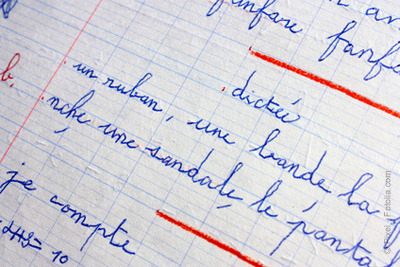 fanfare fanf
dictée
b. un ruban, une bande, la
nche, une sandale, le panta
je compte
= 10
Fotolia.com